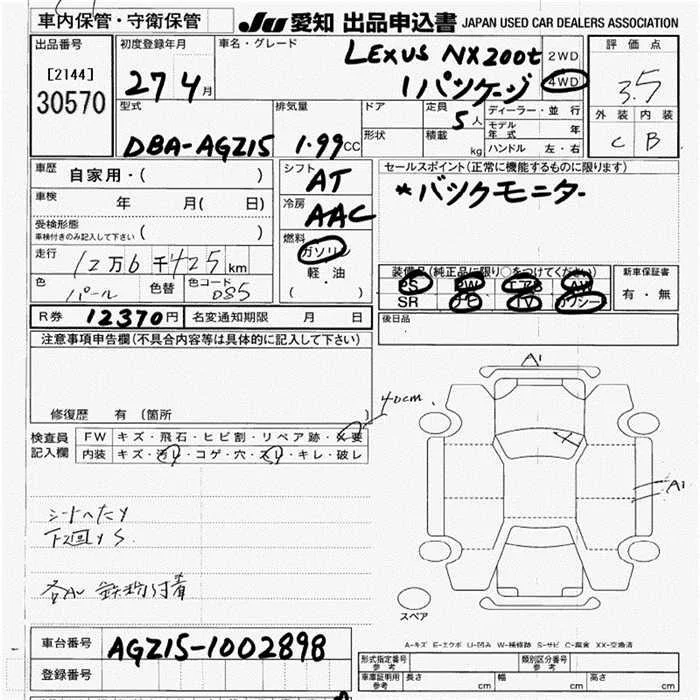 車内保管・守衛保管 JU 愛知 出品申込書 JAPAN USED CAR DEALERS ASSOCIATION
出品番号 初度登録年月 車名・グレード LEXUS NX200t 2WD 4WD 評価点
[2144] 27 4月 Iパッケージ 3.5
30570
型式 排気量 ドア 定員 5人 ディーラー・並行 外装 内装
DBA-AGZ15 1.99CC 形状 積載 kg モデル年式 年 C B
ハンドル 左・右
車歴 自家用・( ) シフト AT セールスポイント(正常に機能するものに限ります)
車検 年 月( 日) 冷房 AAC *バックモニター
受検形態 車検付きのみ記入して下さい ( )
燃料 ガソリン
走行 12万6千425km 軽・油 装備品(純正品に限り○をつけてください) 新車保証書
色 パール 色替 色コード 085 ( ) PS PW エアB AW 有・無
SR ナビ TV カワシート
R券 12370円 名変通知期限 月 日 後日品
注意事項申告欄(不具合内容等は具体的に記入して下さい)
A1
修復歴 有 (箇所 )
40cm
検査員記入欄 FW キズ・飛石・ヒビ割・リペア跡・X要
内装 キズ・汚レ・コゲ・穴・スレ・キレ・破レ
A1
シートへたり
下廻りS
スペア
A-キズ E-エクボ U-凹み W-補修跡 S-サビ C-腐食 XX-交換済
車台番号 AGZ15-1002898
形式指定番号 参考 類別区分番号 参考
登録番号 車庫証明用 参考 長さ cm 幅 cm 高さ cm